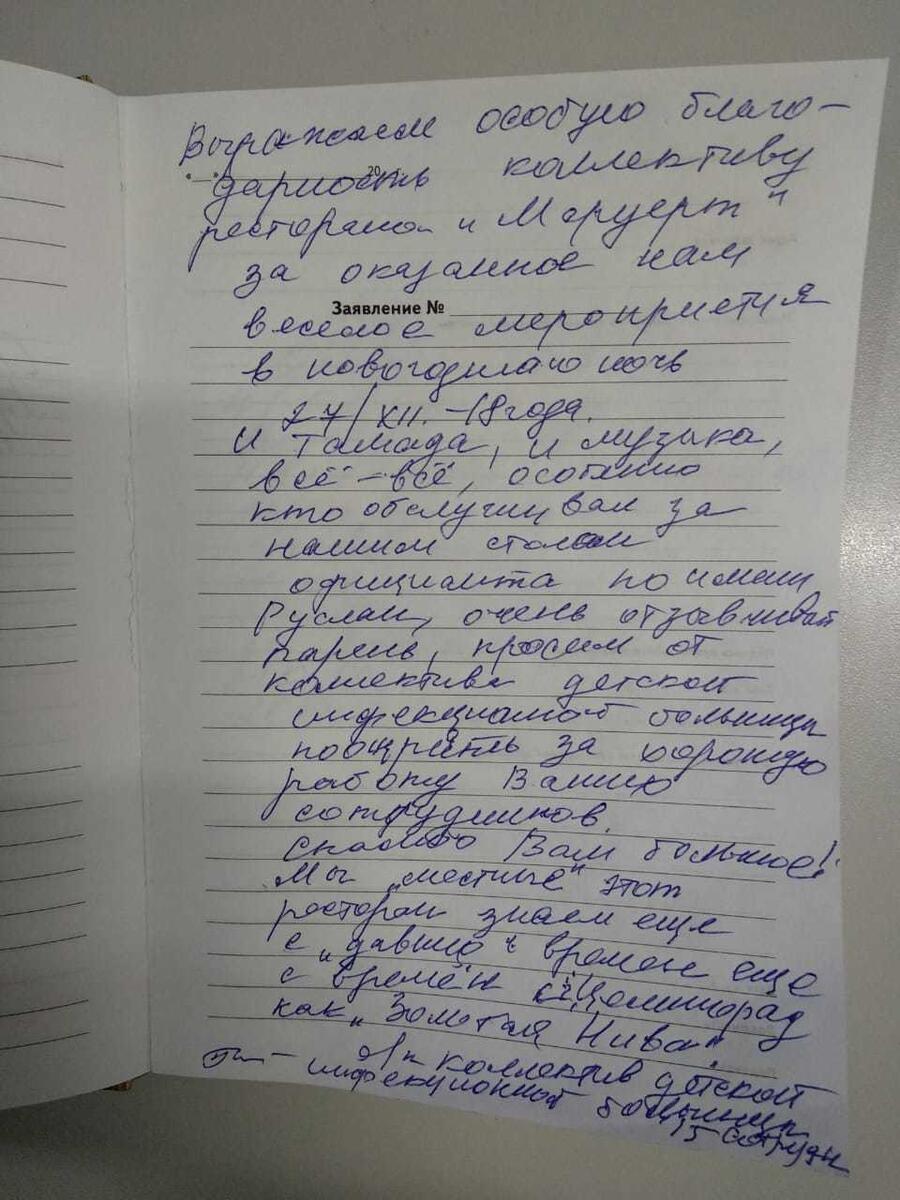 Выражаем особую благо-
дарность коллективу
20
ресторана "Меруерт"
за оказанное нам
Заявление №
веселое мероприятия
в новогоднаю ночь
27/XII.-18года.
И Тамада, и музыка,
всё-всё, особенно
кто обслужиивал за
нашим столом
официанта по имени
Руслан, очень отзывчивай
парень, просим от
коллектива детской
инфекционой больницы
поощрять за хорошую
работу Ваших
сотрудников.
Спасибо Вам большое!
Мы "местные" этот
ресторан знаем еще
с "давних" времен еще
с времён Целиноград
как "Золотая Нива".
коллектив детской
инфекционной больницы
15 сотрудн